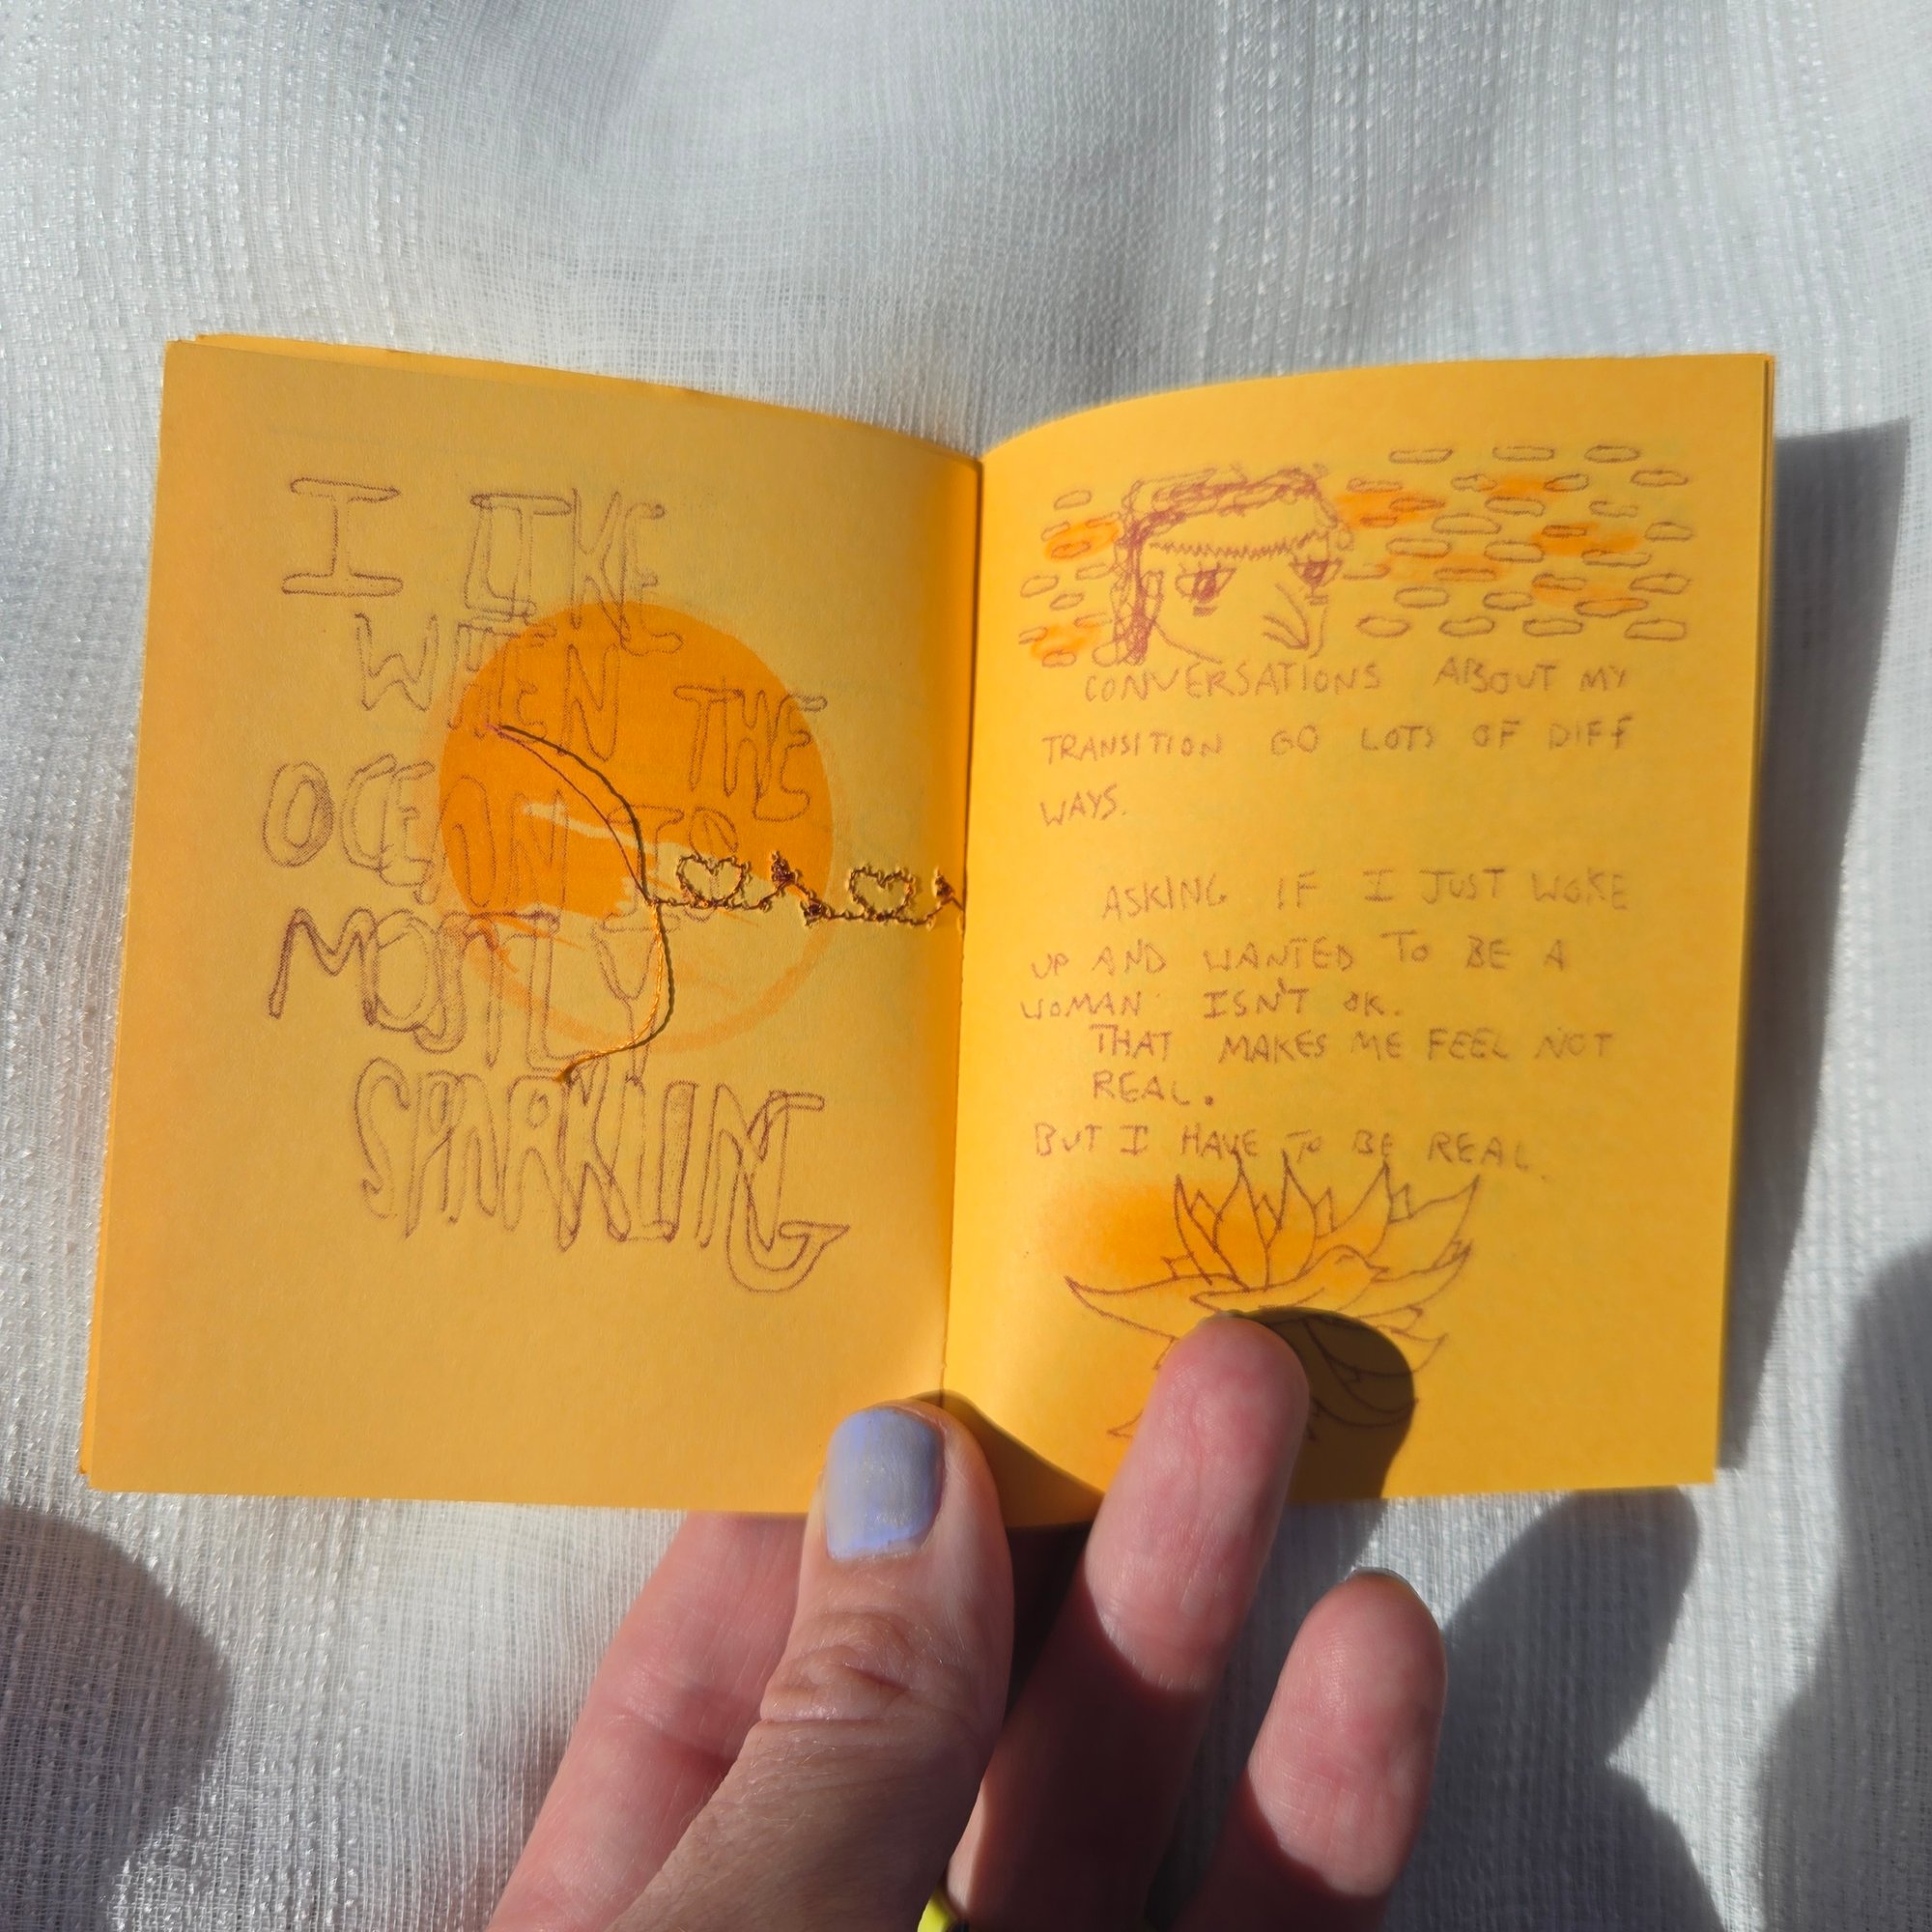 I LIKE
WHEN THE
OCEAN IS
MOSTLY
SPARKLING
CONVERSATIONS ABOUT MY
TRANSITION GO LOTS OF DIFF
WAYS.
ASKING IF I JUST WOKE
UP AND WANTED TO BE A
WOMAN ISN'T OK.
THAT MAKES ME FEEL NOT
REAL.
BUT I HAVE TO BE REAL.